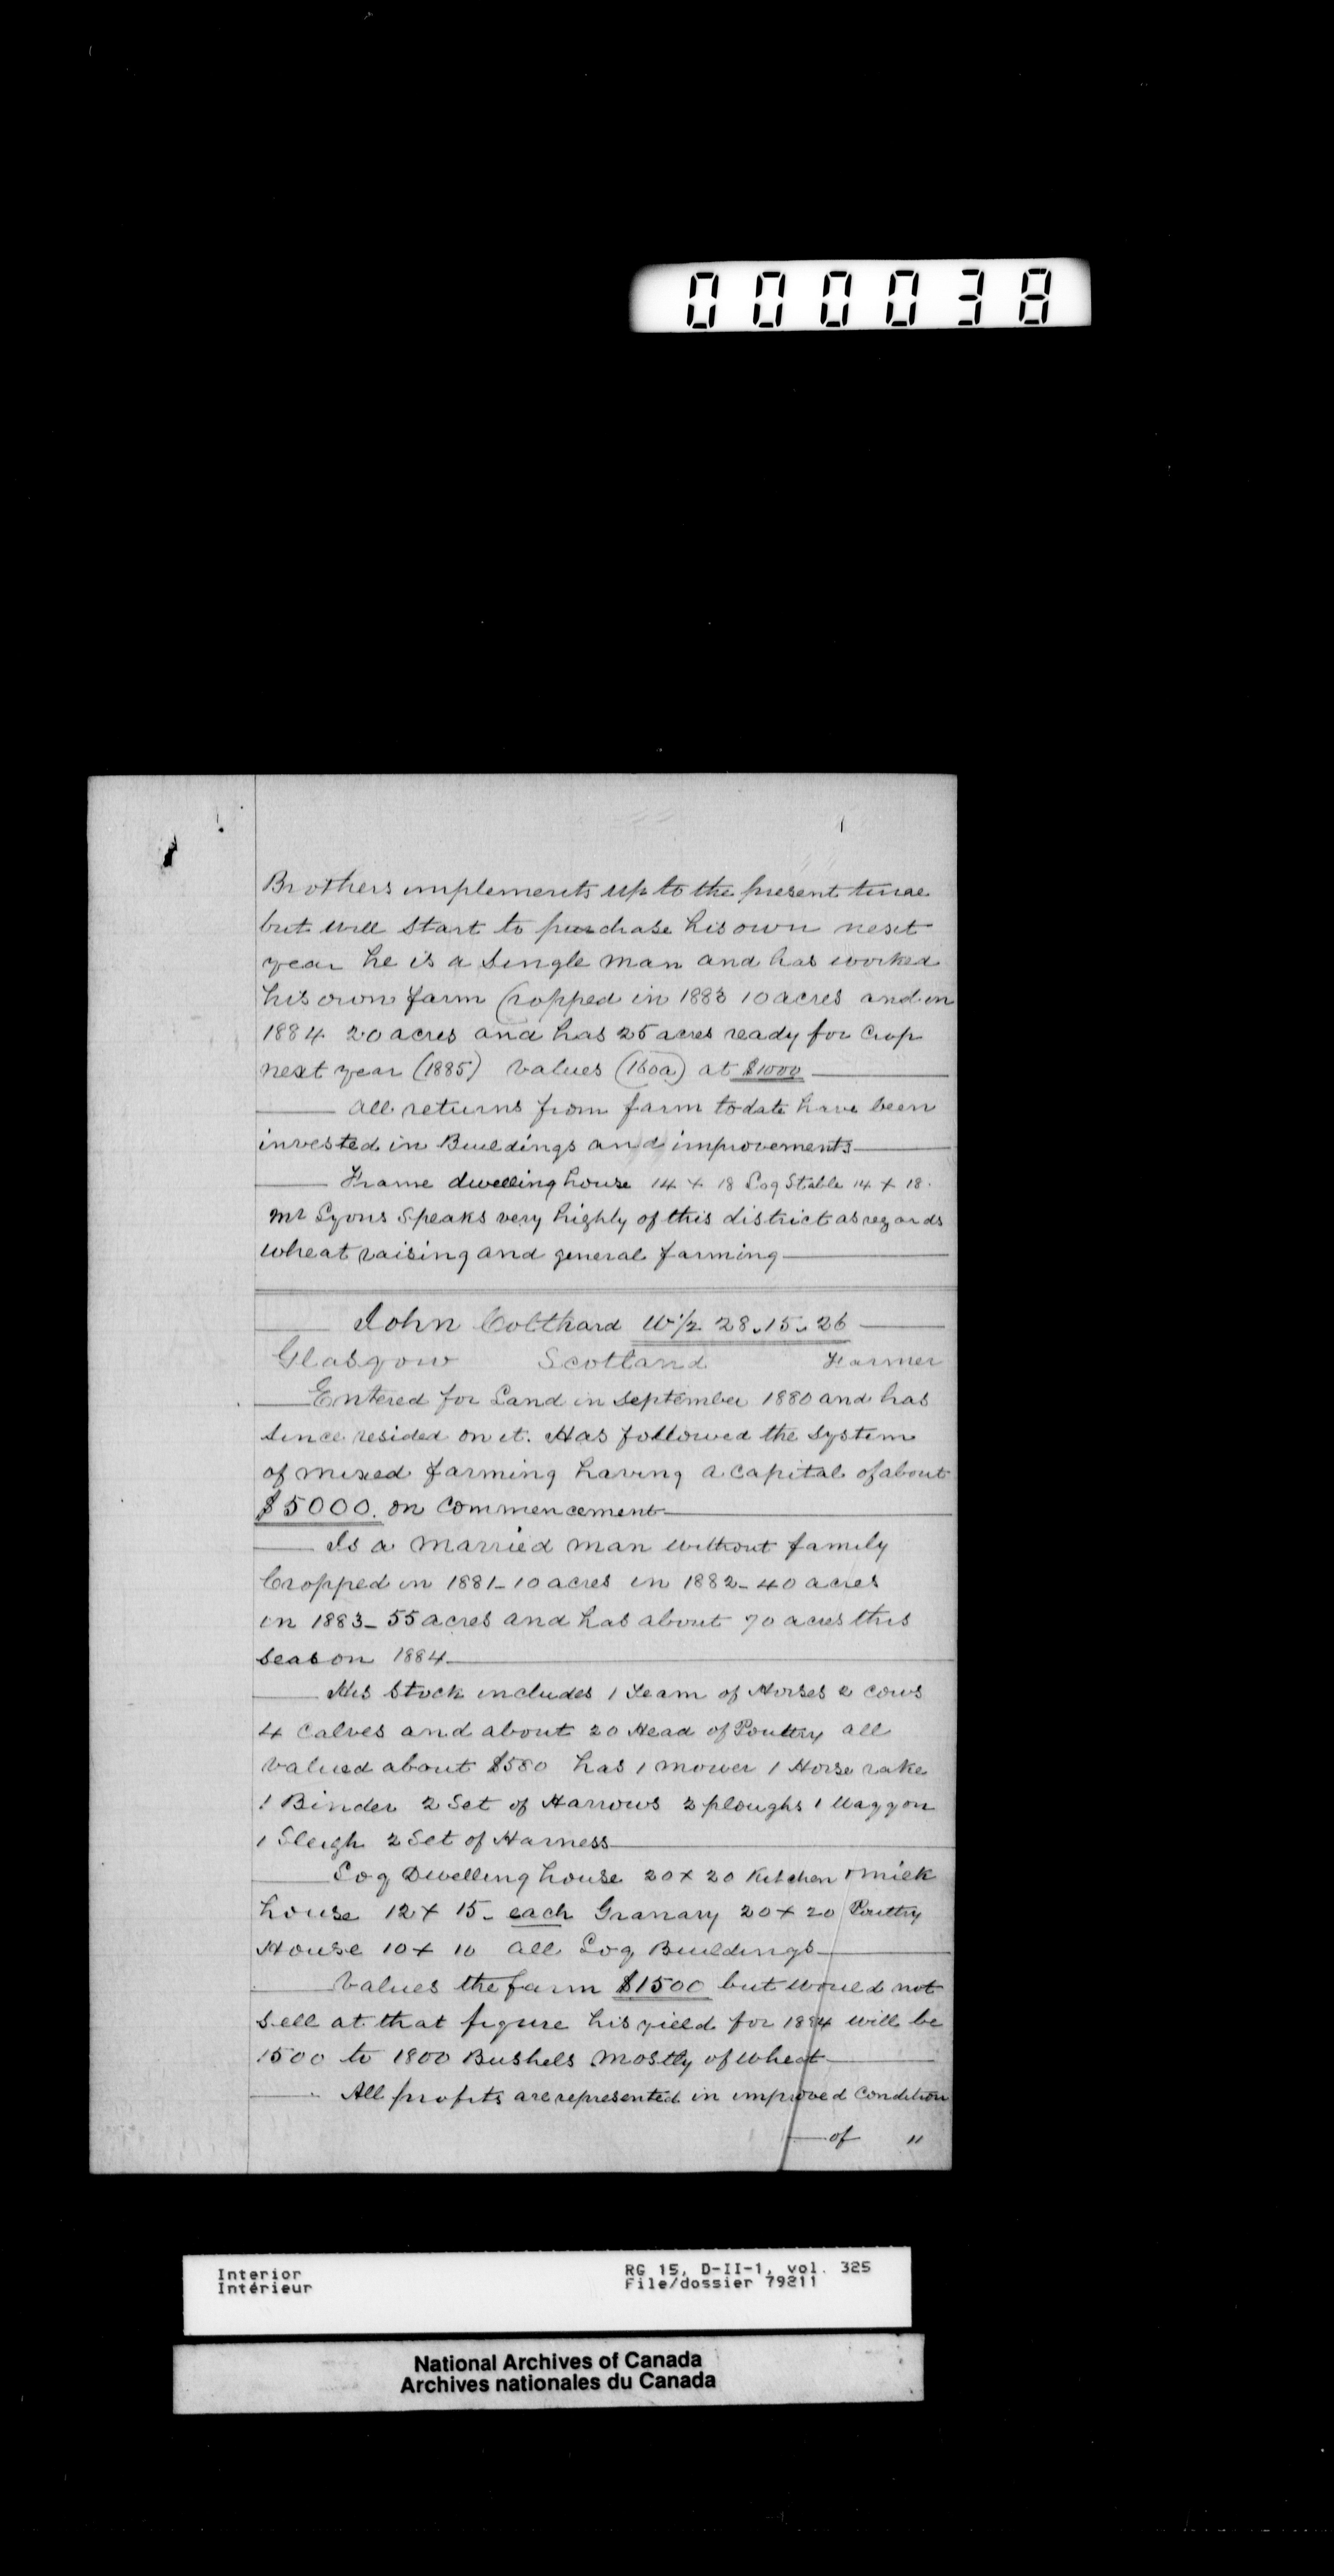 000038
Brothers implements up to the present time
but will start to purchase his own next
year he is a single man and has worked
his own farm Cropped in 1883 10 acres and in
1884 20 acres and has 25 acres ready for crop
next year (1885) values (160a) at $1000
All returns from farm to date have been
invested in Buildings and improvements
Frame dwelling house 14 x 18 Log Stable 14 x 18.
Mr Lyons Speaks very highly of this district as regards
wheat raising and general farming
John Colthard W 1/2 28.15.26
Glasgow Scotland Farmer
Entered for Land in September 1880 and has
since resided on it. Has followed the system
of mixed farming having a capital of about
$5000. on commencement
Is a married man without family
Cropped in 1881-10 acres in 1882-40 acres
in 1883-55 acres and has about 70 acres this
season 1884
His stock includes 1 Team of Horses 2 cows
4 calves and about 20 Head of Poultry all
valued about $580 has 1 mower 1 Horse rake
1 Binder 2 Set of Harrows 2 ploughs 1 Waggon
1 Sleigh 2 Set of Harness
Log Dwelling house 20 x 20 Kitchen & milk
house 12 x 15 - each Granary 20 x 20 Poultry
House 10 x 10 all Log Buildings
Values the farm $1500 but would not
sell at that figure his yield for 1884 will be
1500 to 1800 Bushels mostly of wheat
All profits are represented in improved condition
of "
Interior
Intérieur
RG 15, D-II-1, vol. 325
File/dossier 79211
National Archives of Canada
Archives nationales du Canada